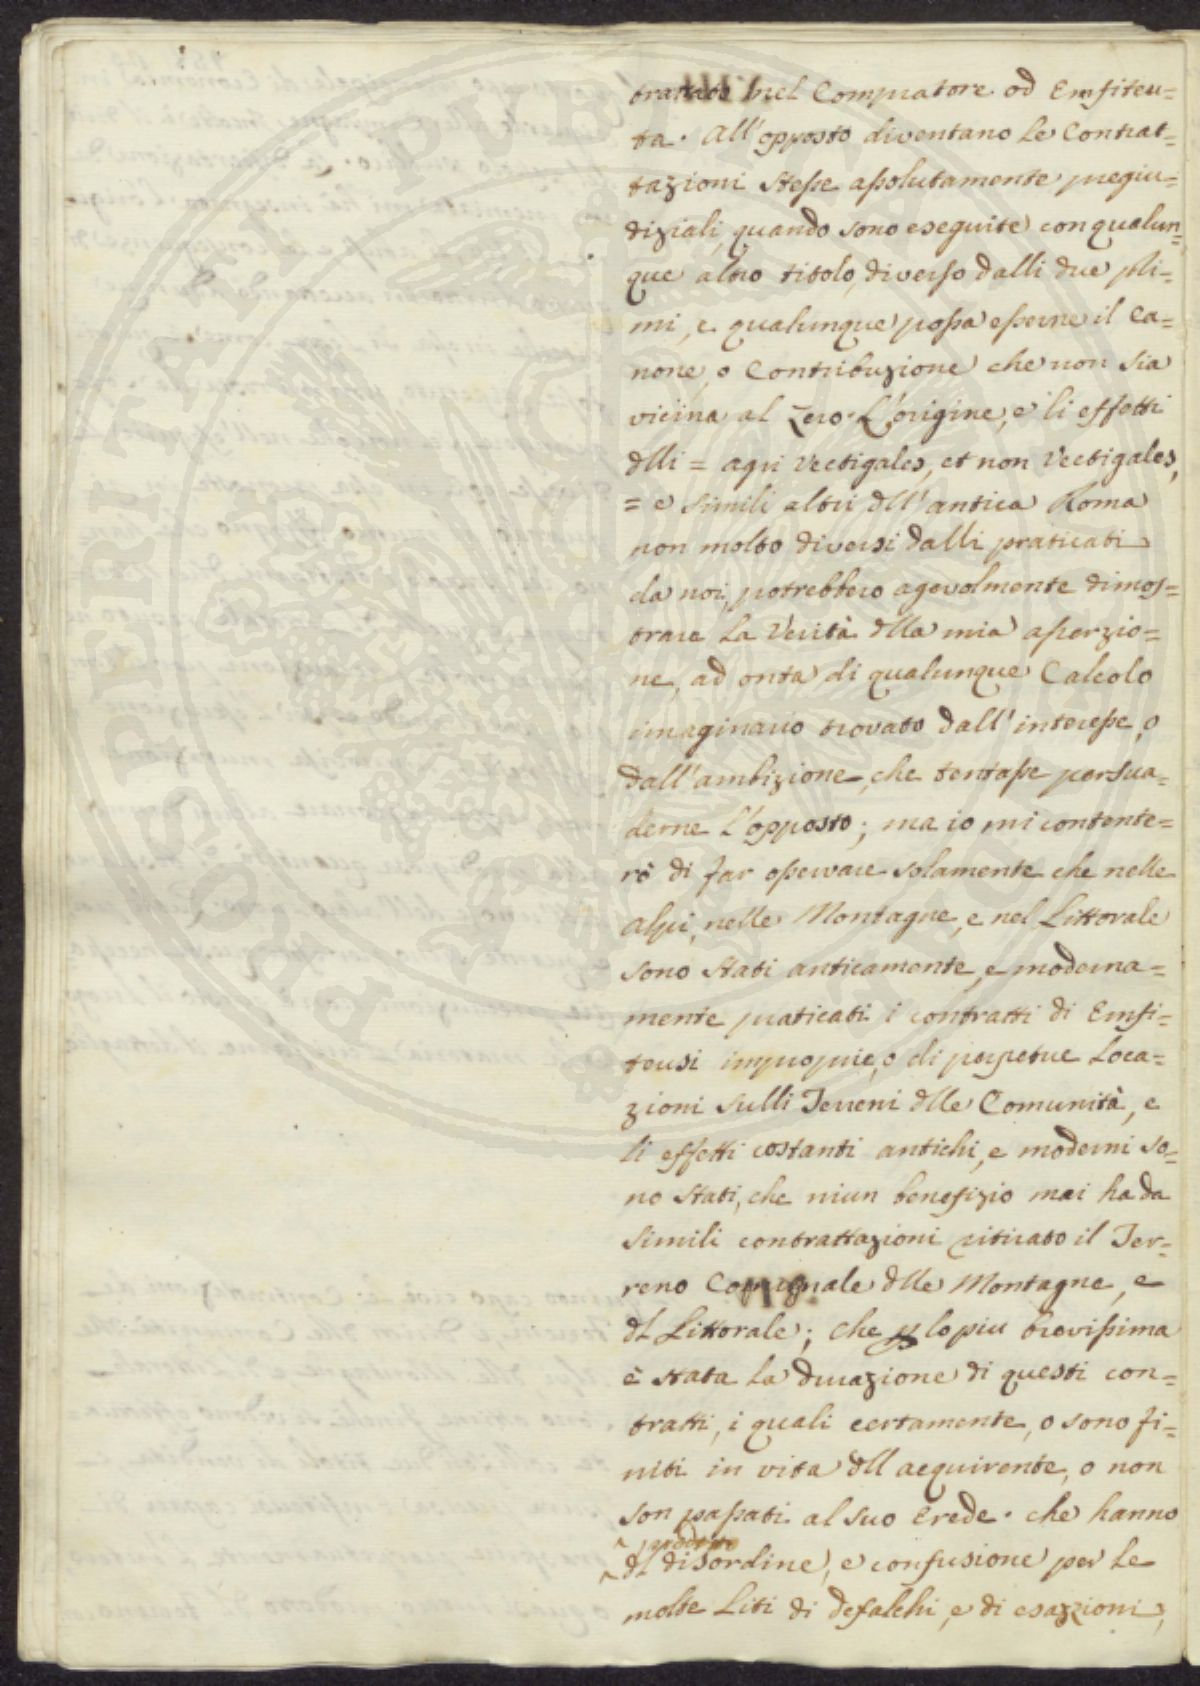 trattato nel Compratore od Emfiteu=
ta. All'opposto diventano le Contrat=
tazioni stesse assolutamente pregiu=
diziali, quando sono eseguite con qualun=
que altro titolo, diverso dalli due pri=
mi, e qualunque possa esserne il Ca=
none, o Contribuzione che non sia
vicina al Zero. L'origine, e li effetti
dlli = agri Vectigales, et non Vectigales,
= e simili altri dll'antica Roma
non molto diversi dalli praticati
da noi, potrebbero agevolmente dimos=
trare la Verità dlla mia asserzio=
ne, ad onta di qualunque Calcolo
imaginario trovato dall'interesse, o
dall'ambizione, che tentasse persua=
derne l'opposto; ma io mi contente=
rò di far osservare solamente che nelle
Alpi, nelle Montagne, e nel Littorale
sono stati anticamente, e moderna=
mente praticati i contratti di Emfi=
teusi improprie, o di perpetue Loca=
zioni sulli Terreni dlle Comunità, e
li effetti costanti antichi, e moderni so=
no stati, che niun benefizio mai ha da
simili contrattazioni ritirato il Ter=
reno Comunale dlle Montagne, e
dl Littorale; che p lo piu brevissima
è stata la durazione di questi con=
tratti, i quali certamente, o sono fi=
niti in vita dll acquirente, o non
son passati al suo Erede. che hanno
prodotto
dl disordine, e confusione per le
molte Liti di defalchi, e di esazzioni,
POSPERITATI PUBLICAE